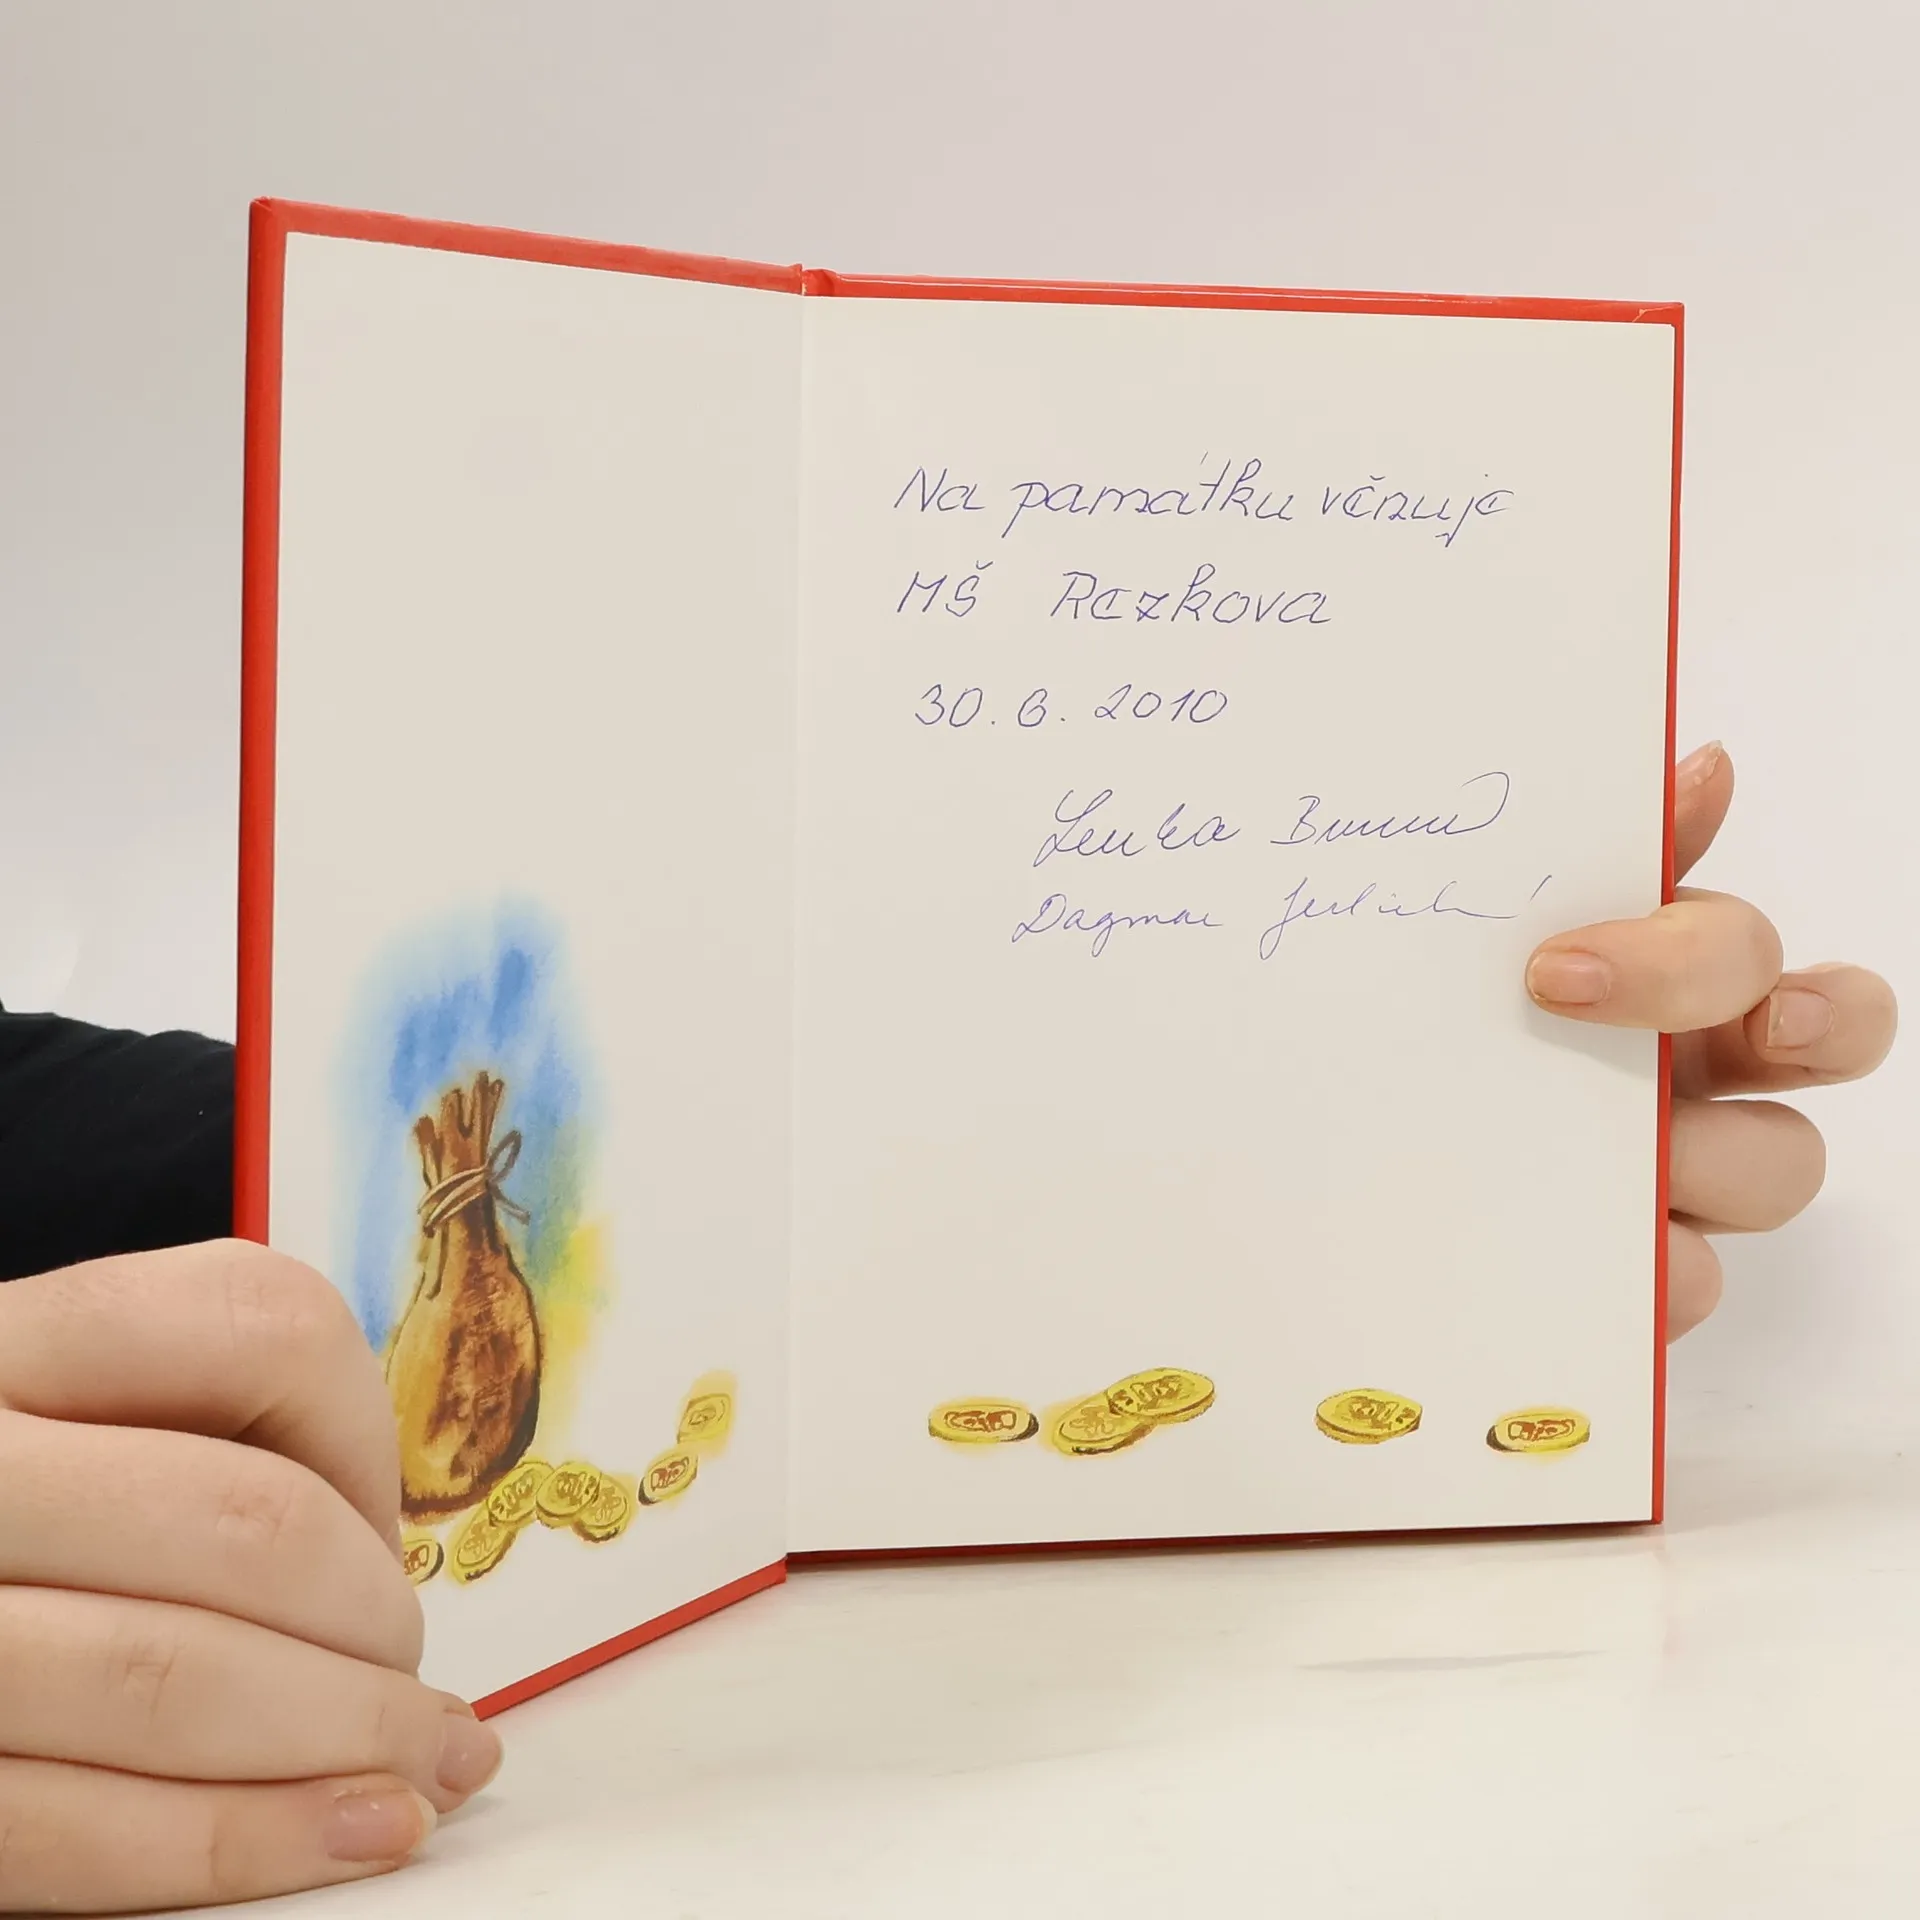 Na památku věnuje
MŠ Rezkova
30. 6. 2010
Lenka
Dagmar